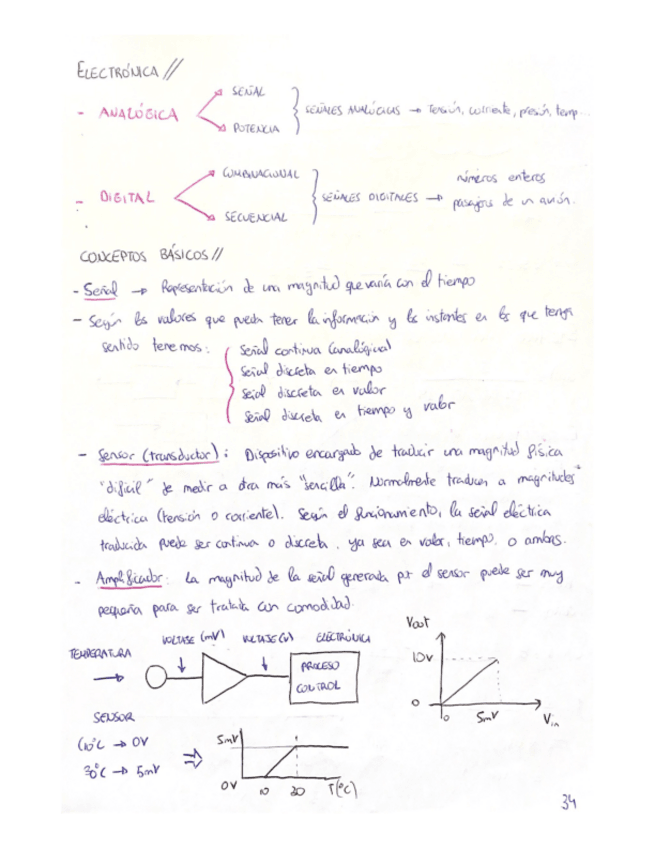 ELECTRÓNICA //
- ANALÓGICA
SEÑAL
POTENCIA
SEÑALES ANALÓGICAS → Tensión, corriente, presión, temp...
- DIGITAL
COMBINACIONAL
SECUENCIAL
SEÑALES DIGITALES →
números enteros
pasajeros de un avión.
CONCEPTOS BÁSICOS //
- Señal → Representación de una magnitud que varía con el tiempo
- Según los valores que pueda tener la información y los instantes en los que tenga
sentido tenemos:
Señal continua (analógica)
Señal discreta en tiempo
Señal discreta en valor
Señal discreta en tiempo y valor
- Sensor (transductor): Dispositivo encargado de traducir una magnitud física
"difícil" de medir a otra más "sencilla". Normalmente traducen a magnitudes
eléctrica (tensión o corriente). Según el funcionamiento, la señal eléctrica
traducida puede ser continua o discreta, ya sea en valor, tiempo, o ambas.
- Amplificador: La magnitud de la señal generada por el sensor puede ser muy
pequeña para ser tratada con comodidad.
TEMPERATURA
VOLTAJE (mV)
VOLTAJE (V)
ELECTRÓNICA
PROCESO
CONTROL
Vout
10V
0
0
5mV
Vin
SENSOR
10°C → 0V
30°C → 5mV
⇒
5mV
0V
10
30
T(°C)
34